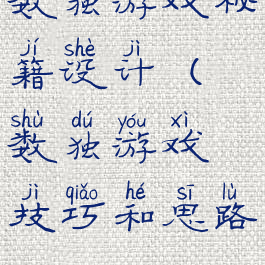 数独游戏秘
jí shè jì
籍设计（
shù dú yóu xì
数独游戏
jì qiǎo hé sī lù
技巧和思路